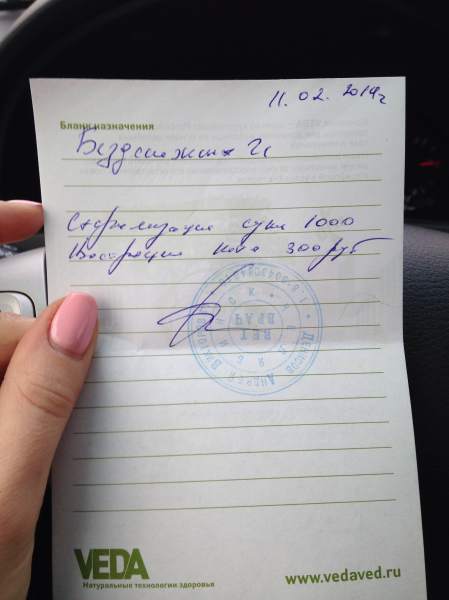 11.02.2014г
Бланк назначения
Стерилизация суки 1000
Кастрация кота 300 руб
ВЕТ
ВРАЧ
VEDA
Натуральные технологии здоровья
www.vedaved.ru